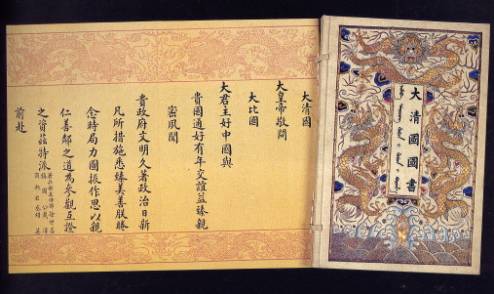 大清國國書
大清國
大皇帝敬問
大比國
大君主好中國與
貴國通好有年交誼益臻親
密夙聞
貴政府文明久著政治日新
凡所措施悉臻美善朕睠
念時局力圖振作思以親
仁善鄰之道為參觀互證
之資茲特派
前赴